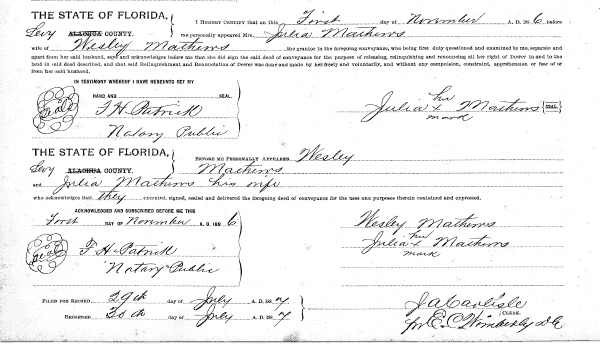 THE STATE OF FLORIDA,
I HEREBY CERTIFY that on this First day of November A. D. 188 6 before
Levy ALACHUA COUNTY. me personally appeared Mrs. Julia Mathews
wife of Wesley Mathews the grantor in the foregoing conveyance, who being first duly questioned and examined by me, separate and
apart from her said husband, says and acknowledges before me that she did sign the said deed of conveyance for the purpose of releasing, relinquishing and renouncing all her right of Dower in and to the
land in said deed described, and that said Relinquishment and Renunciation of Dower was done and made by her freely and voluntarily, and without any compulsion, constraint, apprehension or fear of or
from her said husband.
IN TESTIMONY WHEREOF I HAVE HEREUNTO SET MY
HAND AND SEAL.
Seal
F. H. Patrick
Notary Public
her
Julia x Mathews SEAL
mark
THE STATE OF FLORIDA,
Levy ALACHUA COUNTY.
BEFORE ME PERSONALLY APPEARED Wesley
Mathews
and Julia Mathews his wife
who acknowledges that they executed, signed, sealed and delivered the foregoing deed of conveyance for the uses and purposes therein contained and expressed.
ACKNOWLEDGED AND SUBSCRIBED BEFORE ME THIS
First DAY OF November A. D. 188 6
Seal
F. H. Patrick
Notary Public
Wesley Mathews
her
Julia x Mathews
mark
FILED FOR RECORD 29th day of July A. D. 188 7
RECORDED 30th day of July A. D. 188 7
J A Carlisle
CLERK.
pr E. C. Wimberly D C